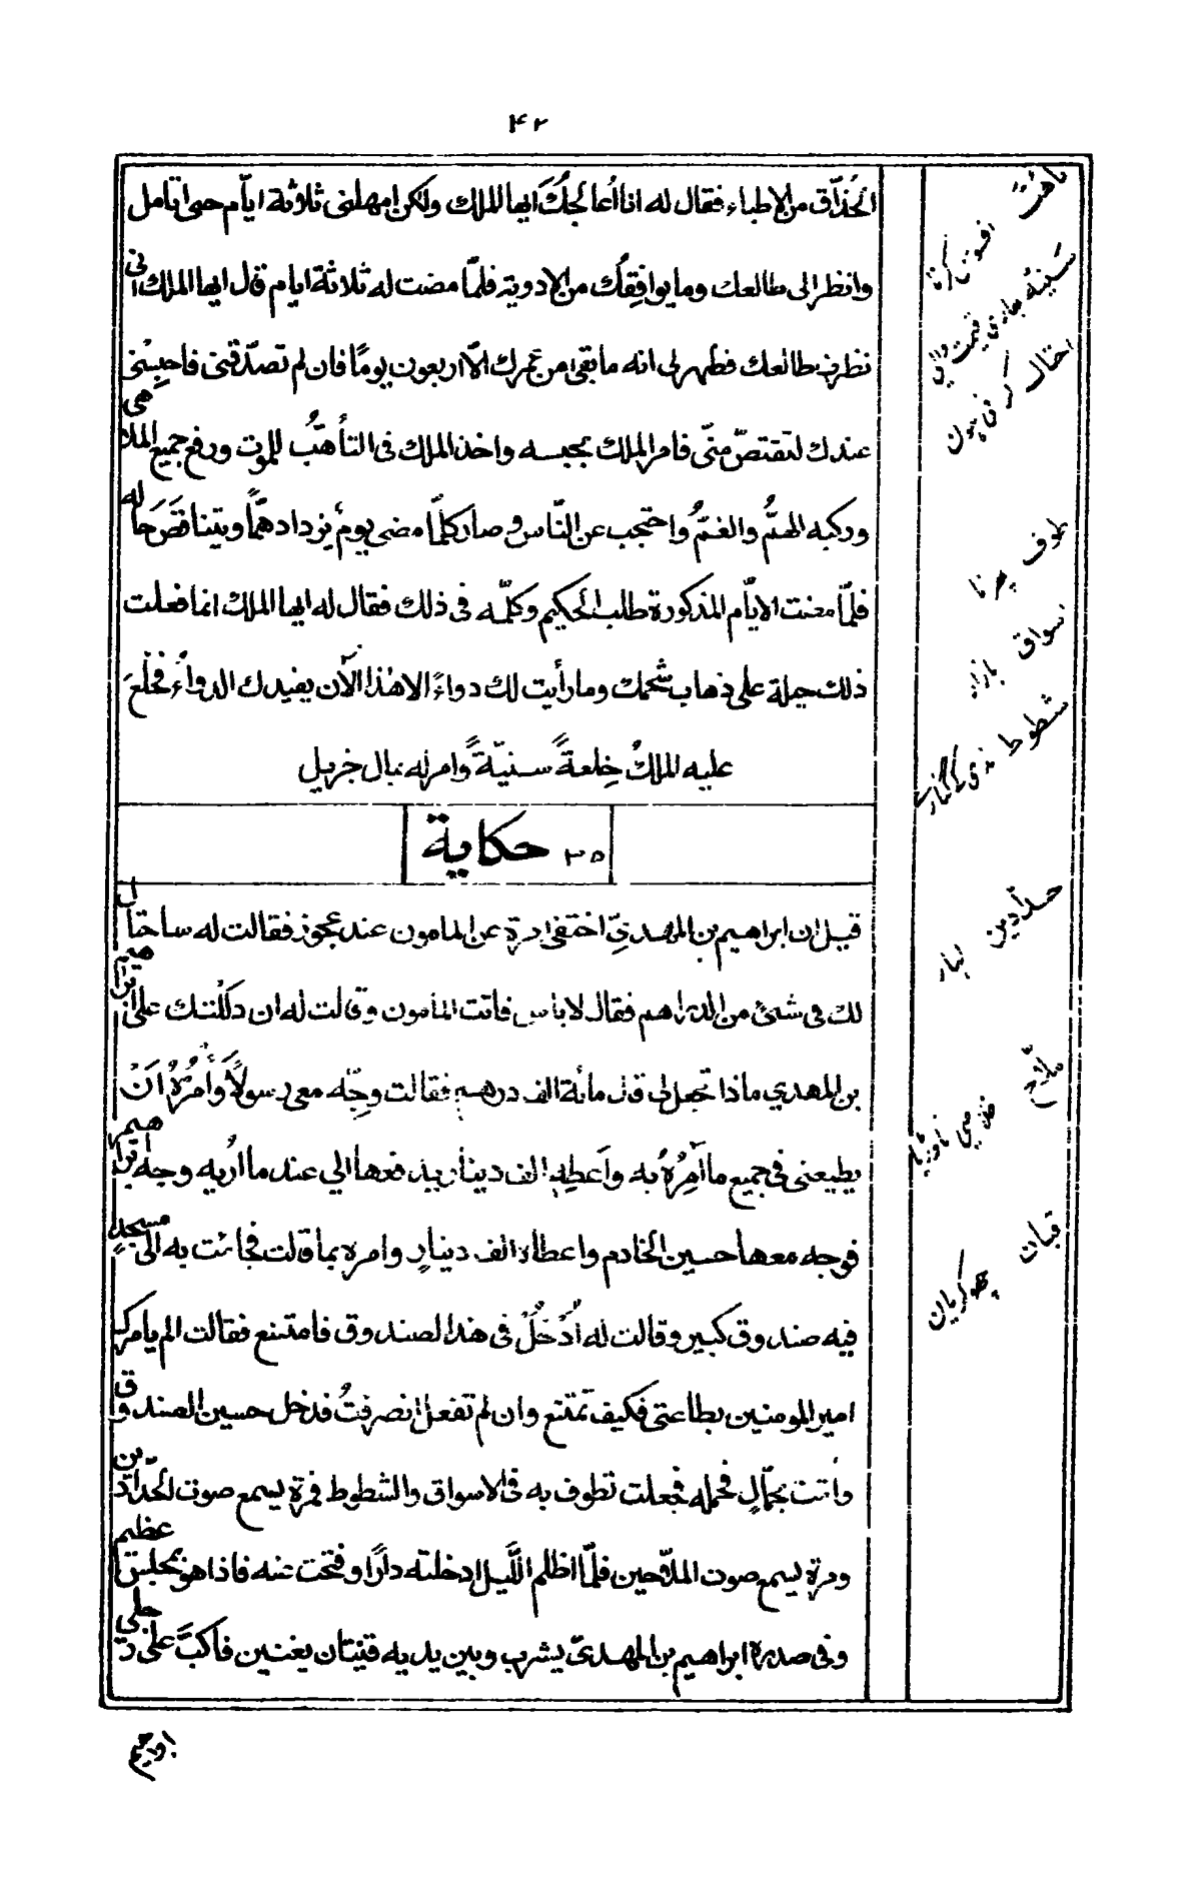 ۴۲
الحُذّاق من الاطباء فقال له انا اُعالجُكَ ايها الملك ولكن امهلنى ثلاثة ايّام حتى اتامل
وانظر الى طالعك وما يوافِقُك من الادوية فلمّا مضت له ثلاثة ايام قال ايها الملك انى
نظرت طالعك فظهر لى انه ما بقى من عمرك الّا اربعون يومًا فان لم تصدّقنى فاحبِسْنى
عندك لتقتصّ منّى فامر الملك بحبسه واخذ الملك فى التأهّبُ للموت ورفع جميع الملاهى
وركبه الهمُّ والغمُّ واحتجب عن النّاس وصار كلّما مضى يومٌ يزداد همًّا ويتناقصَ حاله
فلمّا مضت الايّام المذكورة طلب الحكيم وكلّمه فى ذلك فقال له ايها الملك انما فعلت
ذلك حيلة على ذهاب شحمك وما رأيت لك دواءً الا هٰذا الآن يفيدك الدواءُ فخلَعَ
عليه الملكُ خِلعةً سنيّةً وامر له بمال جزيل
حكاية ۳۵
قيل ان ابراهيم بن المهدىّ اختفى مرة عن المامون عند عجوز فقالت له ساحتال
لك فى شئ من الدراهم فقال لا باس فاتت المأمون وقالت له ان دَلَلْتك على ابراهيم
بن المهدي ماذا تجعل لى قال مائة الف درهم فقالت وجِّه معى رسولًا وَأْمُرْهُ اَنْ
يطيعنى فى جميع ما آمِرُهُ به واَعطِهِ الف دينار يدفعها الي عند ما اُريه وجه ابراهيم
فوجه معها حسين الخادم واعطاه الف دينارٍ وامره بما قالت فجائت به الى مسجدٍ
فيه صندوق كبير وقالت له اُدْخُلْ فى هذا الصندوق فامتنع فقالت الم يامرك
امير المومنين بطاعتى فكيف تمتنع وان لم تفعل انصرفتُ فدخل حسين الصندوق
وأتت بجمّالٍ فحمله فجعلت تطوف به فى الاسواق والشطوط فمرة يسمع صوت الحدّادين
ومرة يسمع صوت الملاّحين فلمّا اظلم اللَّيل ادخلته دارًا وفتحت عنه فاذا هو بمجلس عظيم
وفى صدره ابراهيم بن المهدىّ يشرب وبين يديه قنيتان يغنين فاكبَّ على رجلي
ابراهيم
افسوس كرنا
سَنيّة بهارى قيمت والى
احتال
طوف پهرنا
اسواق بازار
شطوط ندى كے كنارے
حدّادين لہار
ملاّح
قيان چهوكريان